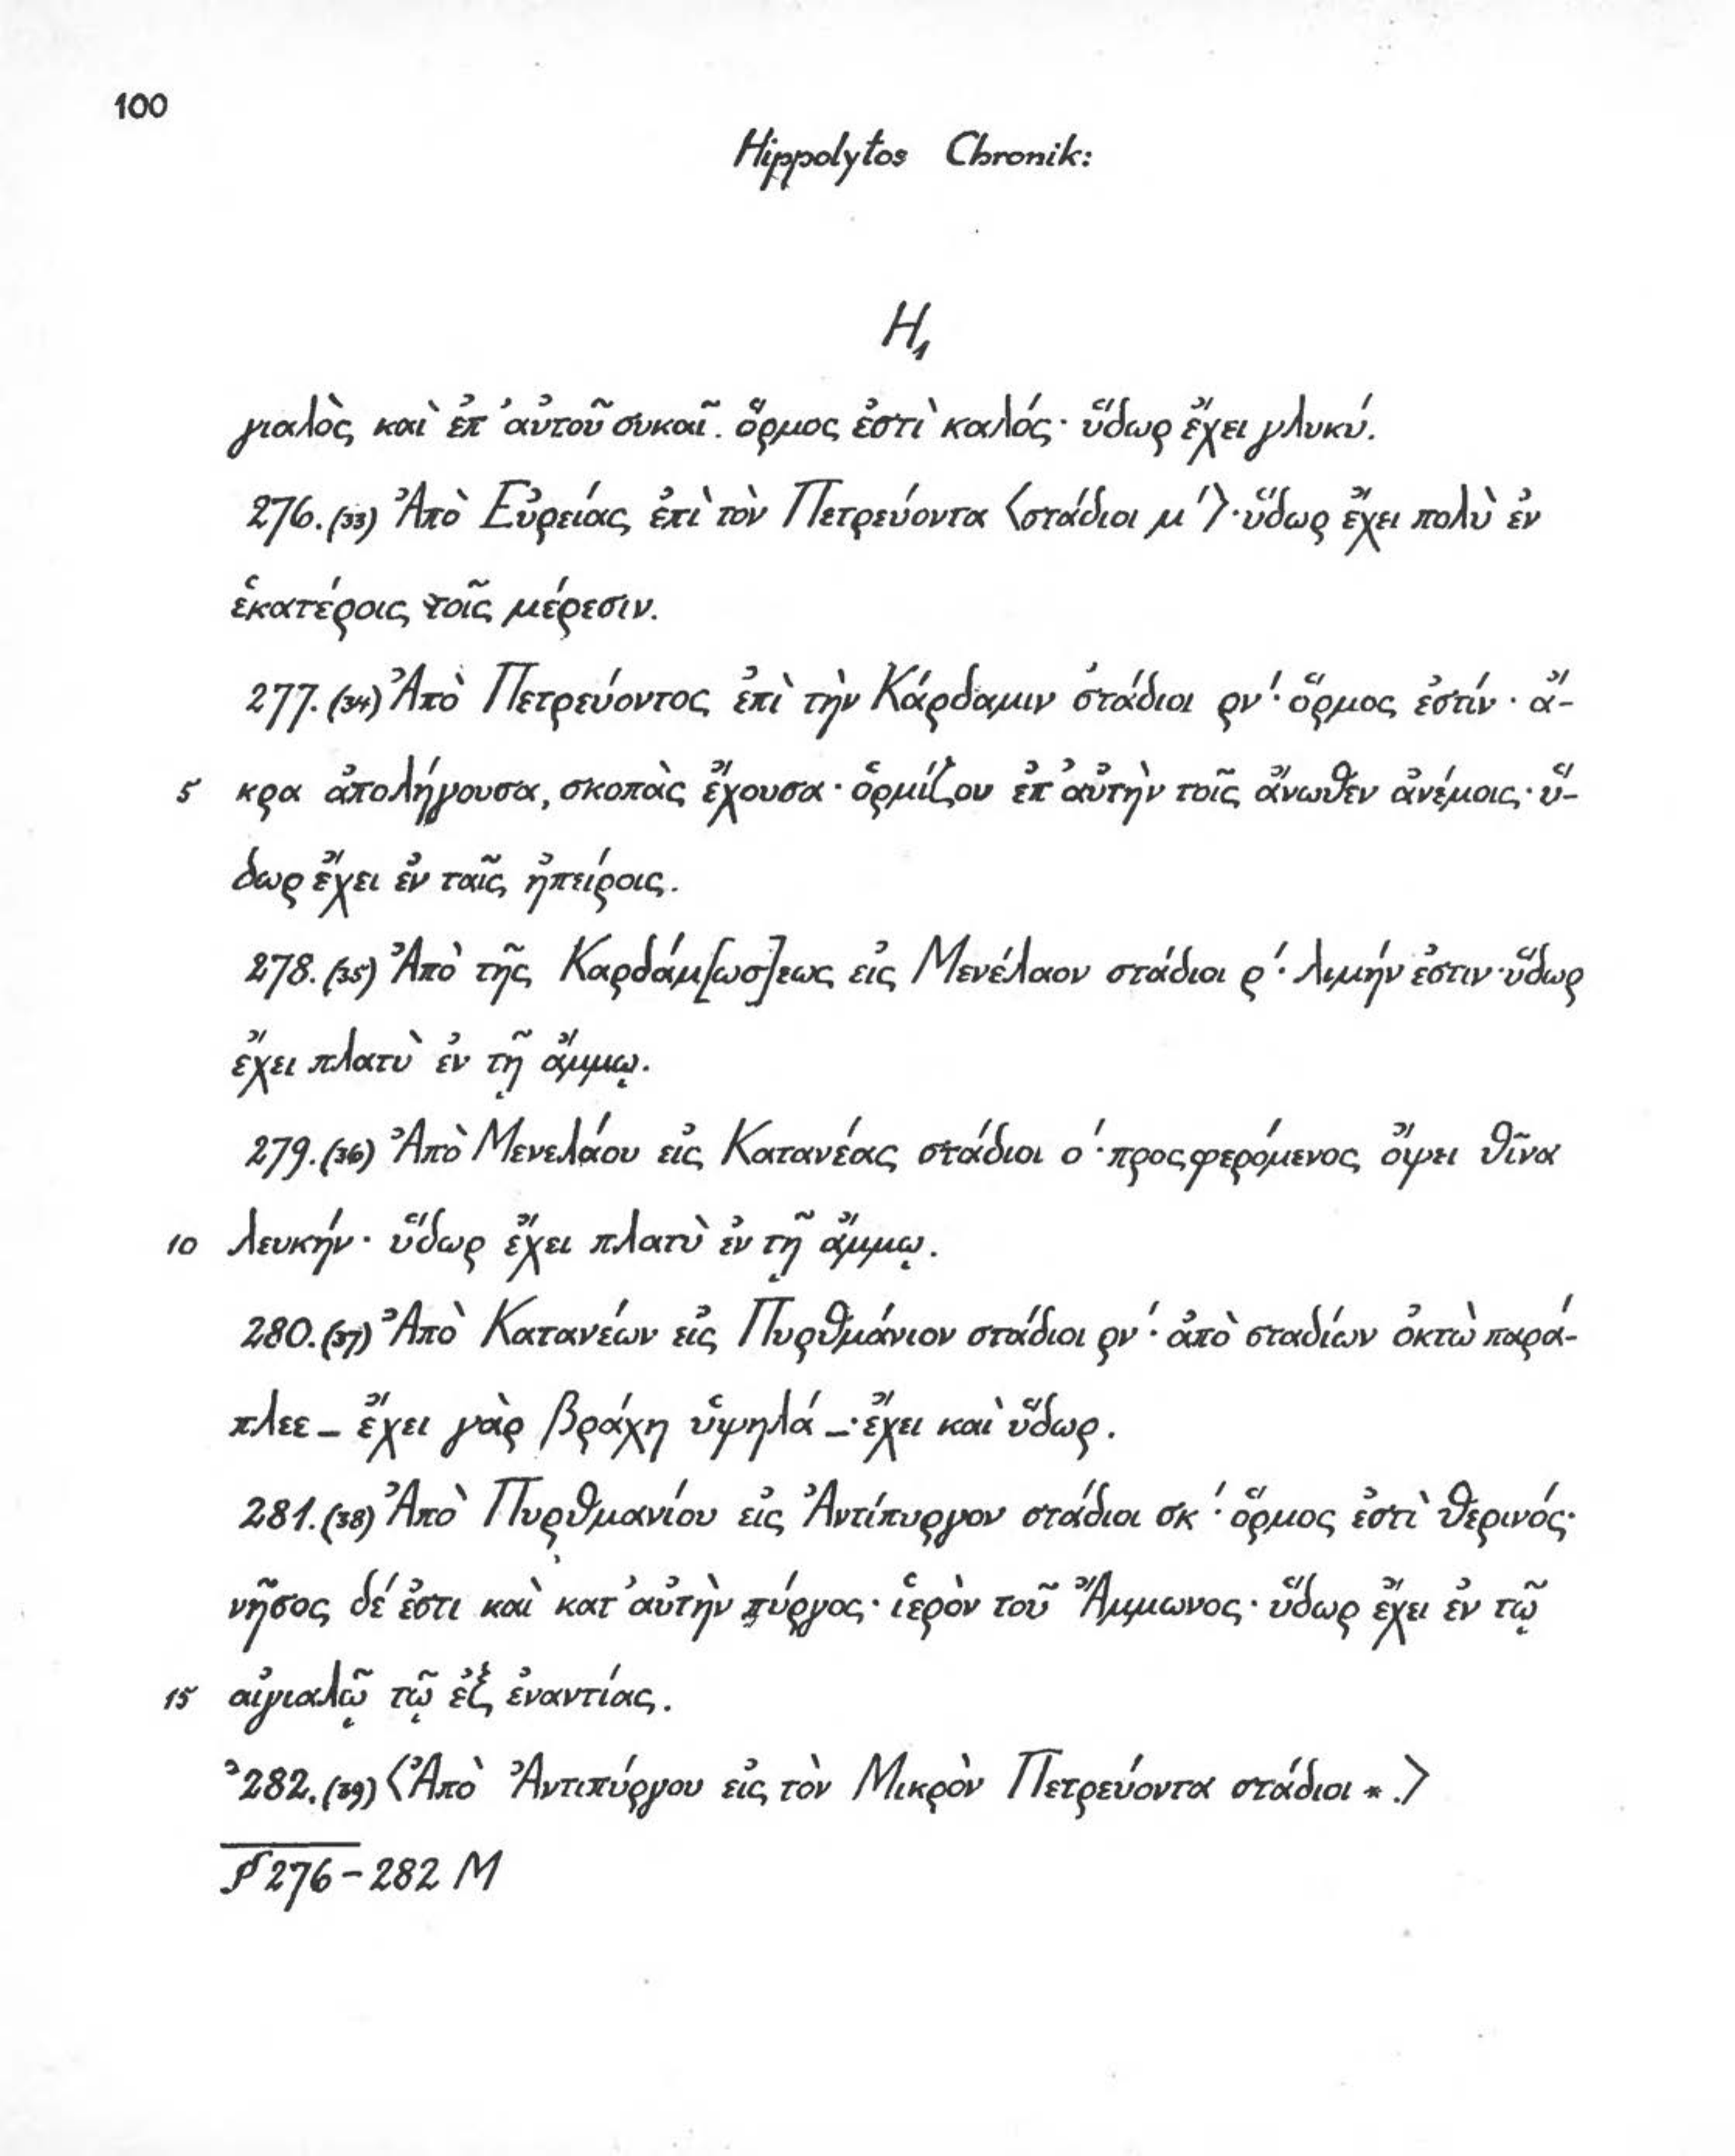 100
Hippolytos Chronik:
H₁
γιαλὸς καὶ ἐπ' αὐτοῦ συκαῖ. ὅρμος ἐστὶ καλός· ὕδωρ ἔχει γλυκύ.
276. (33) Ἀπὸ Εὐρείας ἐπὶ τὸν Πετρεύοντα ⟨στάδιοι μ'⟩· ὕδωρ ἔχει πολὺ ἐν
ἑκατέροις τοῖς μέρεσιν.
277. (34) Ἀπὸ Πετρεύοντος ἐπὶ τὴν Κάρδαμιν στάδιοι ρν'· ὅρμος ἐστίν· ἄ-
5 κρα ἀπολήγουσα, σκοπὰς ἔχουσα· ὁρμίζου ἐπ' αὐτὴν τοῖς ἄνωθεν ἀνέμοις· ὕ-
δωρ ἔχει ἐν ταῖς ἠπείροις.
278. (35) Ἀπὸ τῆς Καρδάμ[ωσ]εως εἰς Μενέλαον στάδιοι ρ'· λιμήν ἐστιν· ὕδωρ
ἔχει πλατὺ ἐν τῇ ἄμμῳ.
279. (36) Ἀπὸ Μενελάου εἰς Κατανέας στάδιοι ο'· προςφερόμενος ὄψει θῖνα
10 λευκήν· ὕδωρ ἔχει πλατὺ ἐν τῇ ἄμμῳ.
280. (37) Ἀπὸ Κατανέων εἰς Πυρθμάνιον στάδιοι ρν'· ἀπὸ σταδίων ὀκτὼ παρά-
πλεε – ἔχει γὰρ βράχη ὑψηλά –· ἔχει καὶ ὕδωρ.
281. (38) Ἀπὸ Πυρθμανίου εἰς Ἀντίπυργον στάδιοι σκ'· ὅρμος ἐστὶ θερινός·
νῆσος δέ ἐστι καὶ κατ' αὐτὴν πύργος· ἱερὸν τοῦ Ἄμμωνος· ὕδωρ ἔχει ἐν τῷ
15 αἰγιαλῷ τῷ ἐξ ἐναντίας.
282. (39) ⟨Ἀπὸ Ἀντιπύργου εἰς τὸν Μικρὸν Πετρεύοντα στάδιοι *.⟩
§ 276 – 282 M